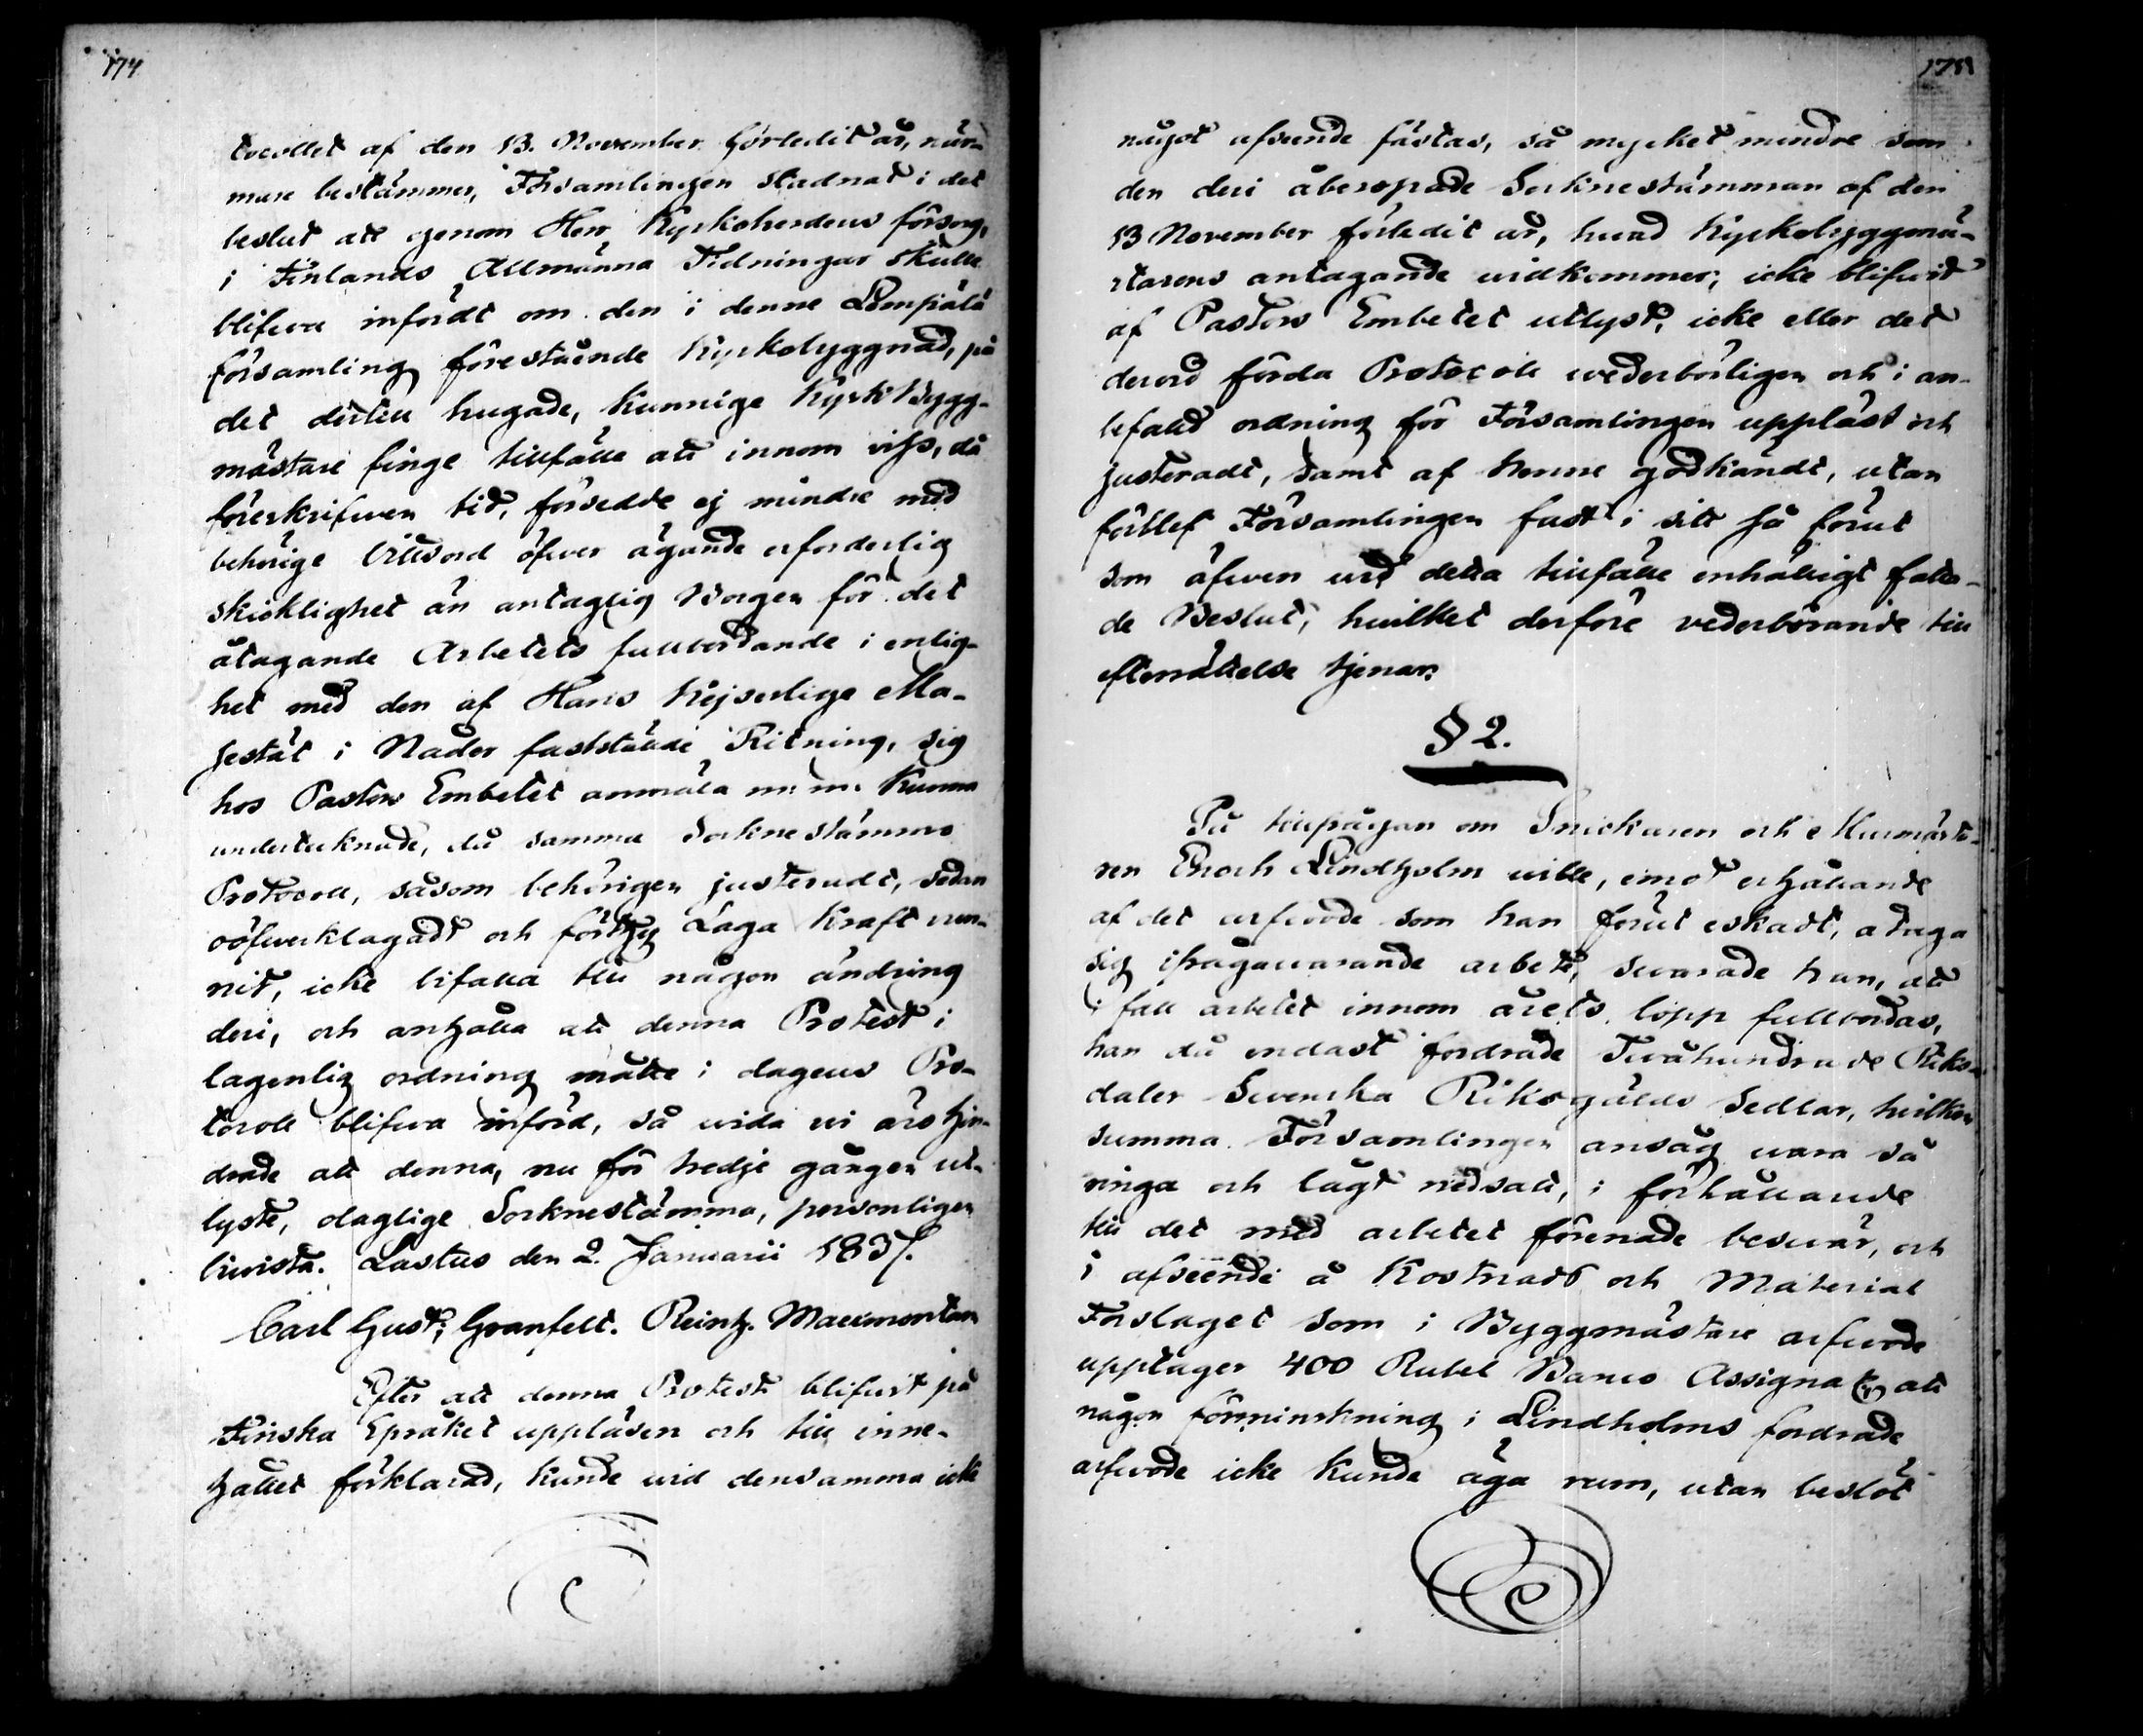 174
tocollet af den 13. November förledit år, när-
mare bestämmer, Församlingen stadnat i det
beslut att genom Herr Kyrkoherdens försorg,
i Finlands Allmänna Tidningar skulle
blifwa infördt om den i denne Lempälä
församling förestående Kyrkobyggnad, på
det dertill hugade, kunnige Kyrk Bygg-
mästare finge tillfälle att innom viss, då
föreskrifwen tid, försedde ej mindre med
behörige Vittsord öfwer ägande erforderlig
skicklighet än antaglig Borgen för det
åtagande Arbetets fullbordande i enlig-
het med den af Hans Kejserlige Ma-
jestät i Nåder fastställde Ritning, sig
hos Pastors Embetet anmäla m: m: Kunna
undertecknade, då samma Sockne stämmo
Protocoll, såsom behörigen justeradt, sedan
oöfwerklagadt och förthy Laga Kraft wun-
nit, icke bifalla till någon ändring
deri, och anhålla att denna Protest i
lagenlig ordning måtte i dagens Pro-
tocoll blifwa införd, så wida wi äro hin-
drade att denna, nu för tredje gången ut-
lyste, olaglige Socknestämma, personligen
biwista. Lastus den 2. Januarii 1837.
Carl Gust: Granfelt. Reinh. Maximontan
Efter att denna Protest blifwit på
Finska Språket uppläsen och till inne-
hållet förklarad, kunde wid densamma icke
175
något afseende fästas, så mycket mindre som
den deri åberopade Socknestämman af den
13 November förledit år, hwad Kyrkobyggmä-
starens antagande widkommer; icke blifwit
af Pastors Embetet utlyst, icke eller det
derwid förda Protocoll wederbörligen och i an-
befalld ordning för Församlingen uppläst och
justeradt, samt af Henne godkändt, utan
förblef Församlingen fast i sitt så förut
som äfwen wid detta tillfälle enhälligt fatta-
de Beslut, hwilket derföre vederbörande till
efterrättelse tjenar.
§ 2.
På tillfrågan om Snickaren och Murmästa-
ren Enoch Lindholm wille, emot erhållande
af det arfwode som han förut eskadt, åtaga
sig ifrågawarande arbete, swarade han, att
i fall arbetet innom årets lopp fullbordas,
han då endast fordrade Twåhundrade Riks-
daler Swenska Riksgälds Sedlar, hwilken
summa Församlingen ansåg wara så
ringa och lågt nedsatt, i förhållande
till det med arbetet förenade beswär, och
i afseende å Kostnads och Material
Förslaget som i Byggmästare arfwode
upptager 400 Rubel Banco Assignat(r) att
någon förminskning i Lindholms fordrade
arfwode icke kunde äga rum, utan beslöt